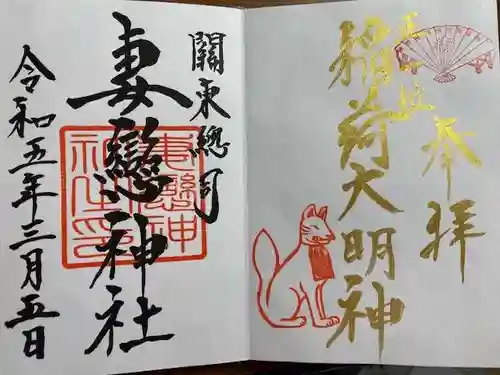 奉拝
正一位
稲荷大明神
關東總司
妻戀神社
令和五年三月五日
妻戀神
社之印